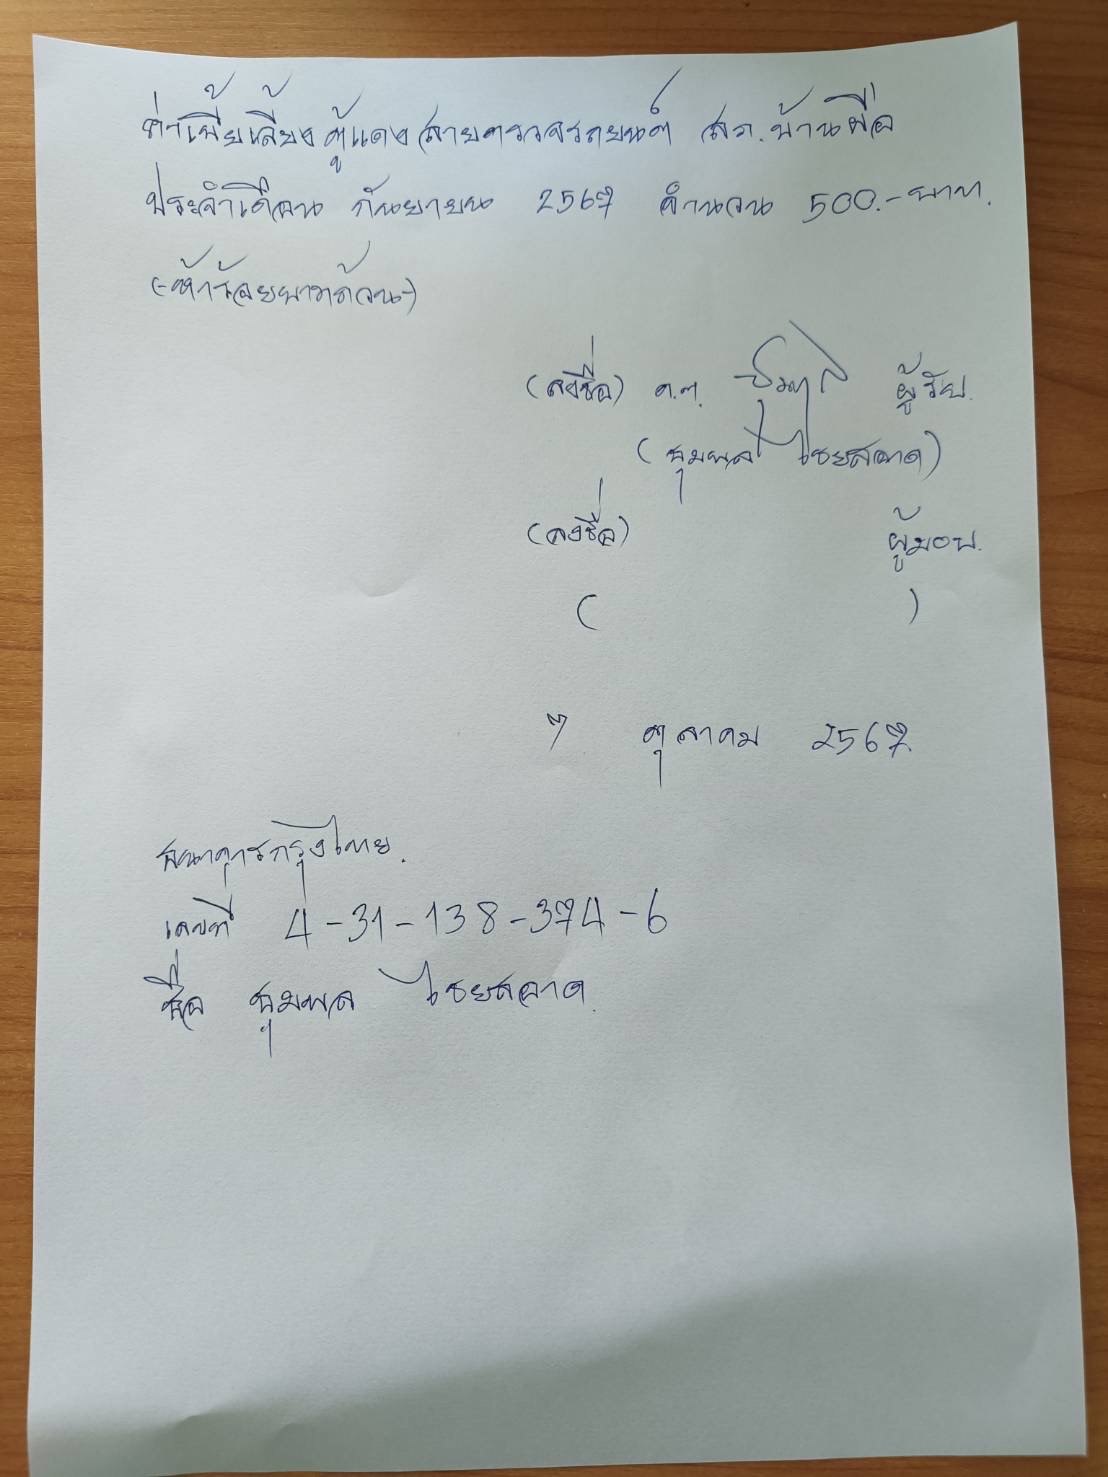 ค่าเบี้ยเลี้ยงตู้แดง สายตรวจรถยนต์ สภ.บ้านผือ
ประจำเดือน กันยายน 2567 จำนวน 500.- บาท.
(-ห้าร้อยบาทถ้วน-)
(ลงชื่อ) ด.ต. ผู้รับ.
(จุมพล ไชยสอาด)
(ลงชื่อ) ผู้มอบ.
( )
7 ตุลาคม 2567.
ธนาคารกรุงไทย.
เลขที่ 4-31-138-374-6
ชื่อ จุมพล ไชยสอาด.